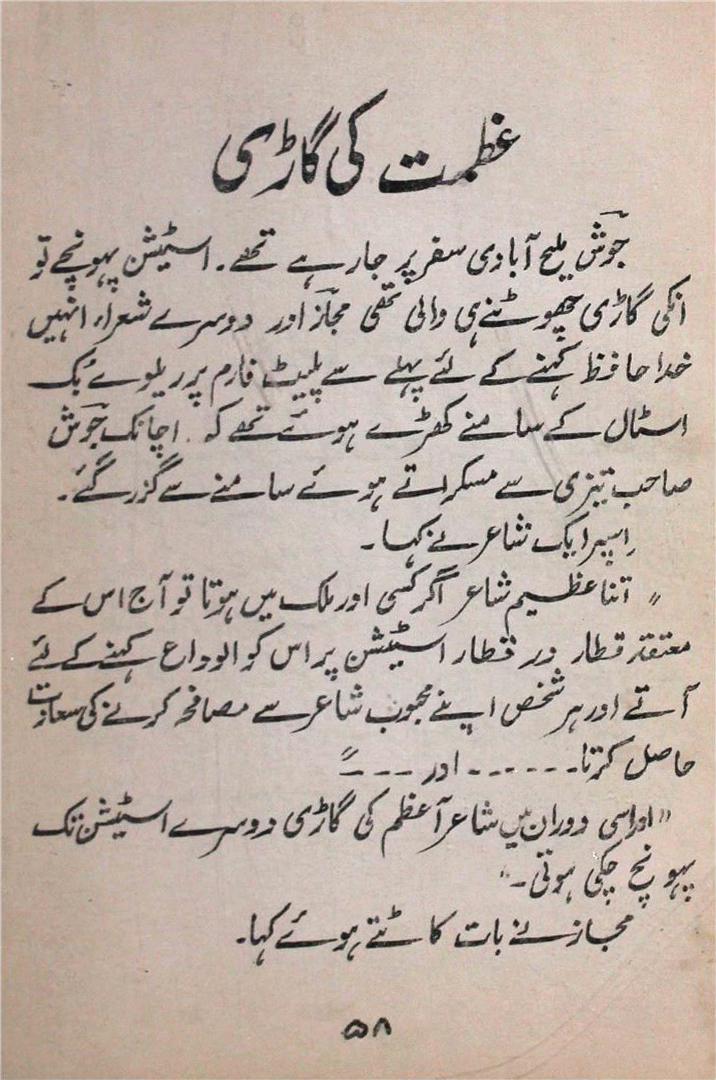 عظمت کی گاڑی
جوشؔ ملیح آبادی سفر پر جارہے تھے۔ اسٹیشن پہونچے تو
انکی گاڑی چھوٹنے ہی والی تھی مجازؔ اور دوسرے شعراء انہیں
خدا حافظ کہنے کے لئے پہلے سے پلیٹ فارم پر ریلوے بک
اسٹال کے سامنے کھڑے ہوئے تھے کہ اچانک جوشؔ
صاحب تیزی سے مسکراتے ہوئے سامنے سے گزر گئے۔
اسپر ایک شاعر نے کہا۔
"اتنا عظیم شاعر اگر کسی اور ملک میں ہوتا تو آج اس کے
معتقد قطار در قطار اسٹیشن پر اس کو الوداع کہنے کے لئے
آتے اور ہر شخص اپنے محبوب شاعر سے مصافحہ کرنے کی سعادت
حاصل کرتا۔۔۔۔۔۔۔ اور ۔۔۔۔"
"اور اسی دوران میں شاعر آعظم کی گاڑی دوسرے اسٹیشن تک
پہونچ چکی ہوتی۔"
مجاز نے بات کاٹتے ہوئے کہا۔
۵۸